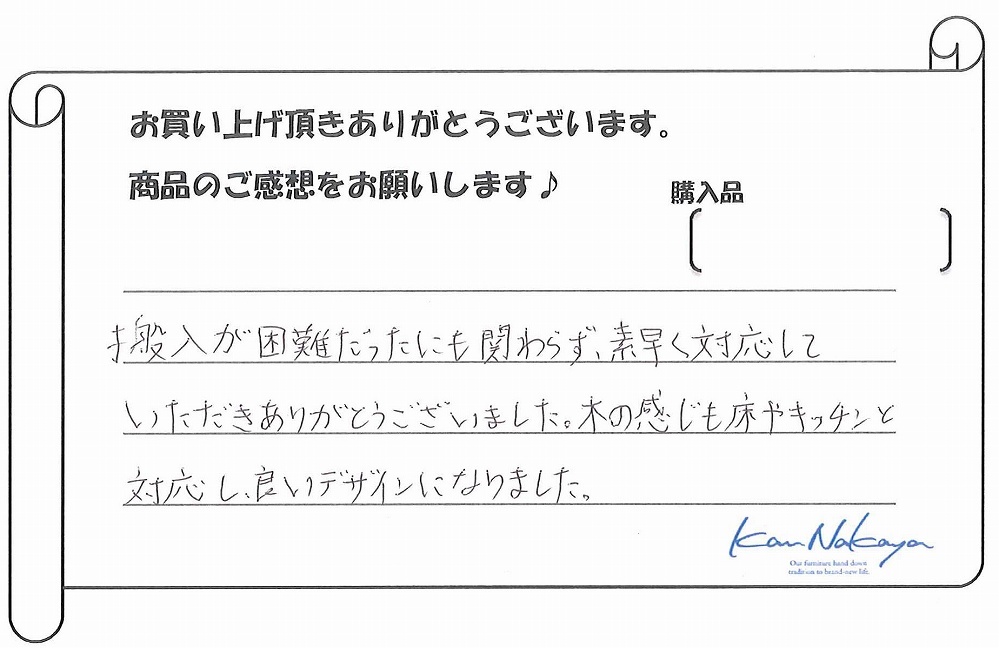 お買い上げ頂きありがとうございます。
商品のご感想をお願いします♪
購入品
搬入が困難だったにも関わらず、素早く対応して
いただきありがとうございました。木の感じも床やキッチンと
対応し、良いデザインになりました。
Kan Nakaya
Our furniture hand down
tradition to brand-new life.